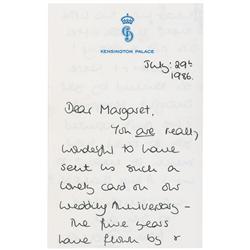 KENSINGTON PALACE
July: 29th
1986.
Dear Margaret,
You are really
wonderful to have
sent us such a
lovely card on our
wedding Anniversary -
The five years
have flown by &